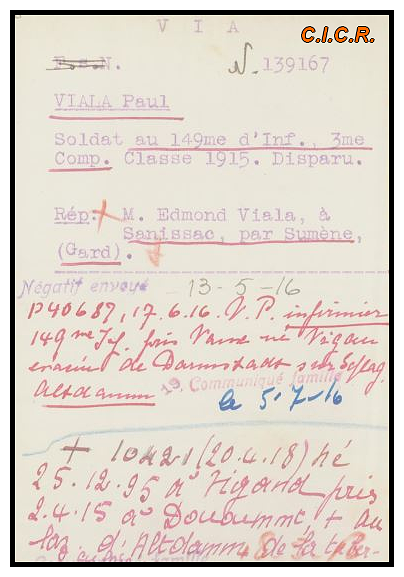 V I A
C.I.C.R.
N. 139167
VIALA Paul
Soldat au 149me d'Inf., 3me
Comp. Classe 1915. Disparu.
Rép: M. Edmond Viala, à
Sanissac, par Sumène,
(Gard).
Négatif envoyé 13-5-16
P40687, 17.6.16. V.P. infirmier
149me If. pris né Vigan
de Darmstadt sur
Altdamm
Communiqué famille
le 5-7-16
+ 10421 (20.4.18) né
25.12.95 à Vigand pris
2.4.15 à Douaumnt, + au
laz. d'Altdamm de la tuber-